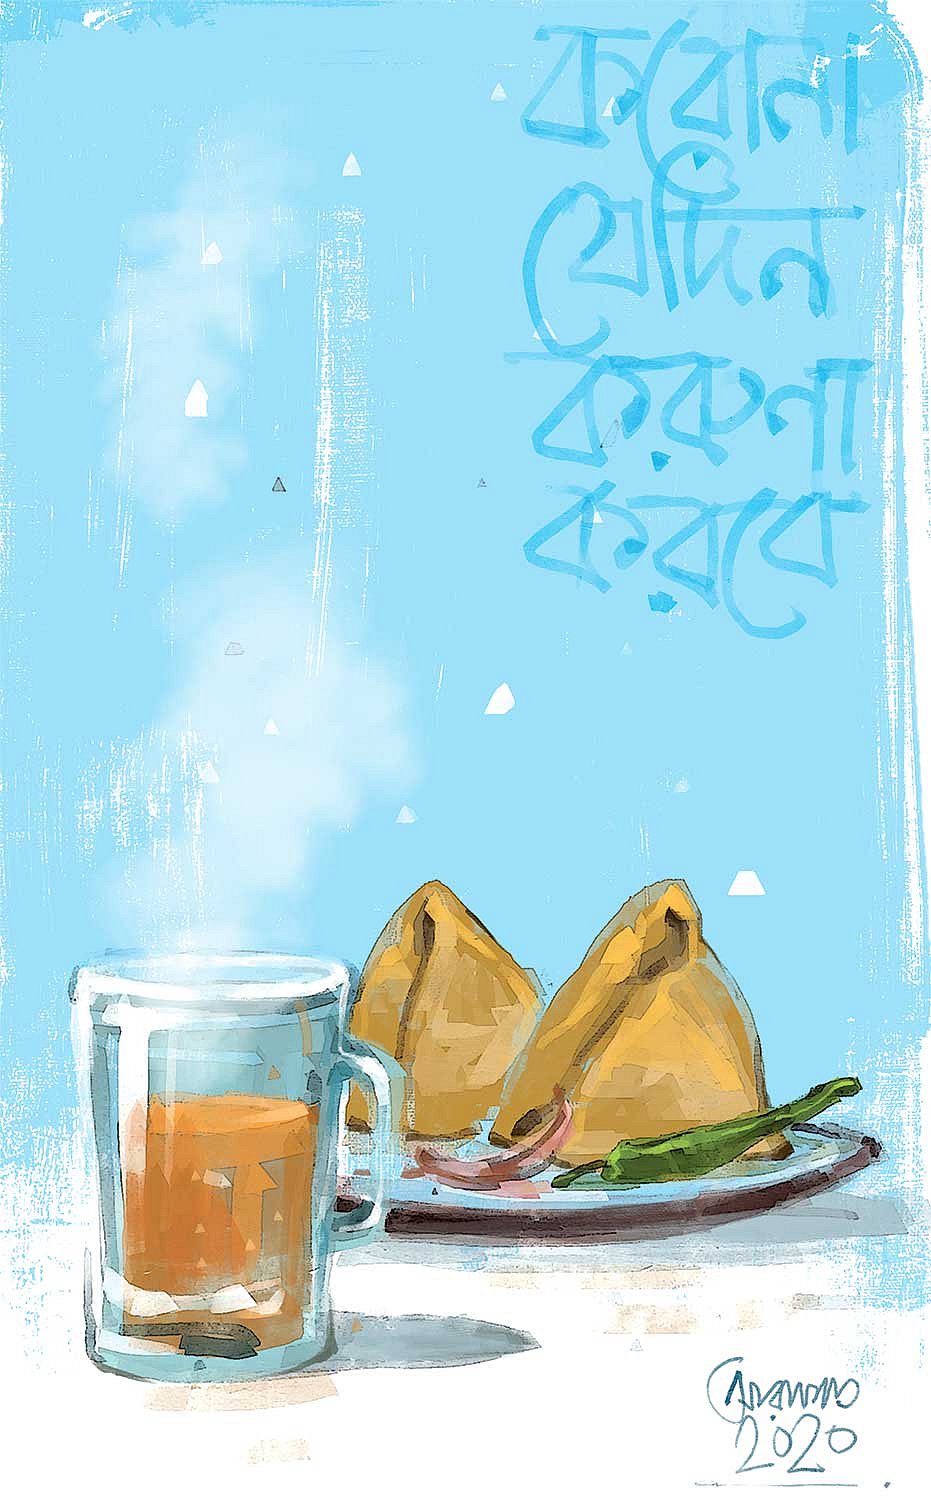 করোনা
যেদিন
করুণা
করবে
2020